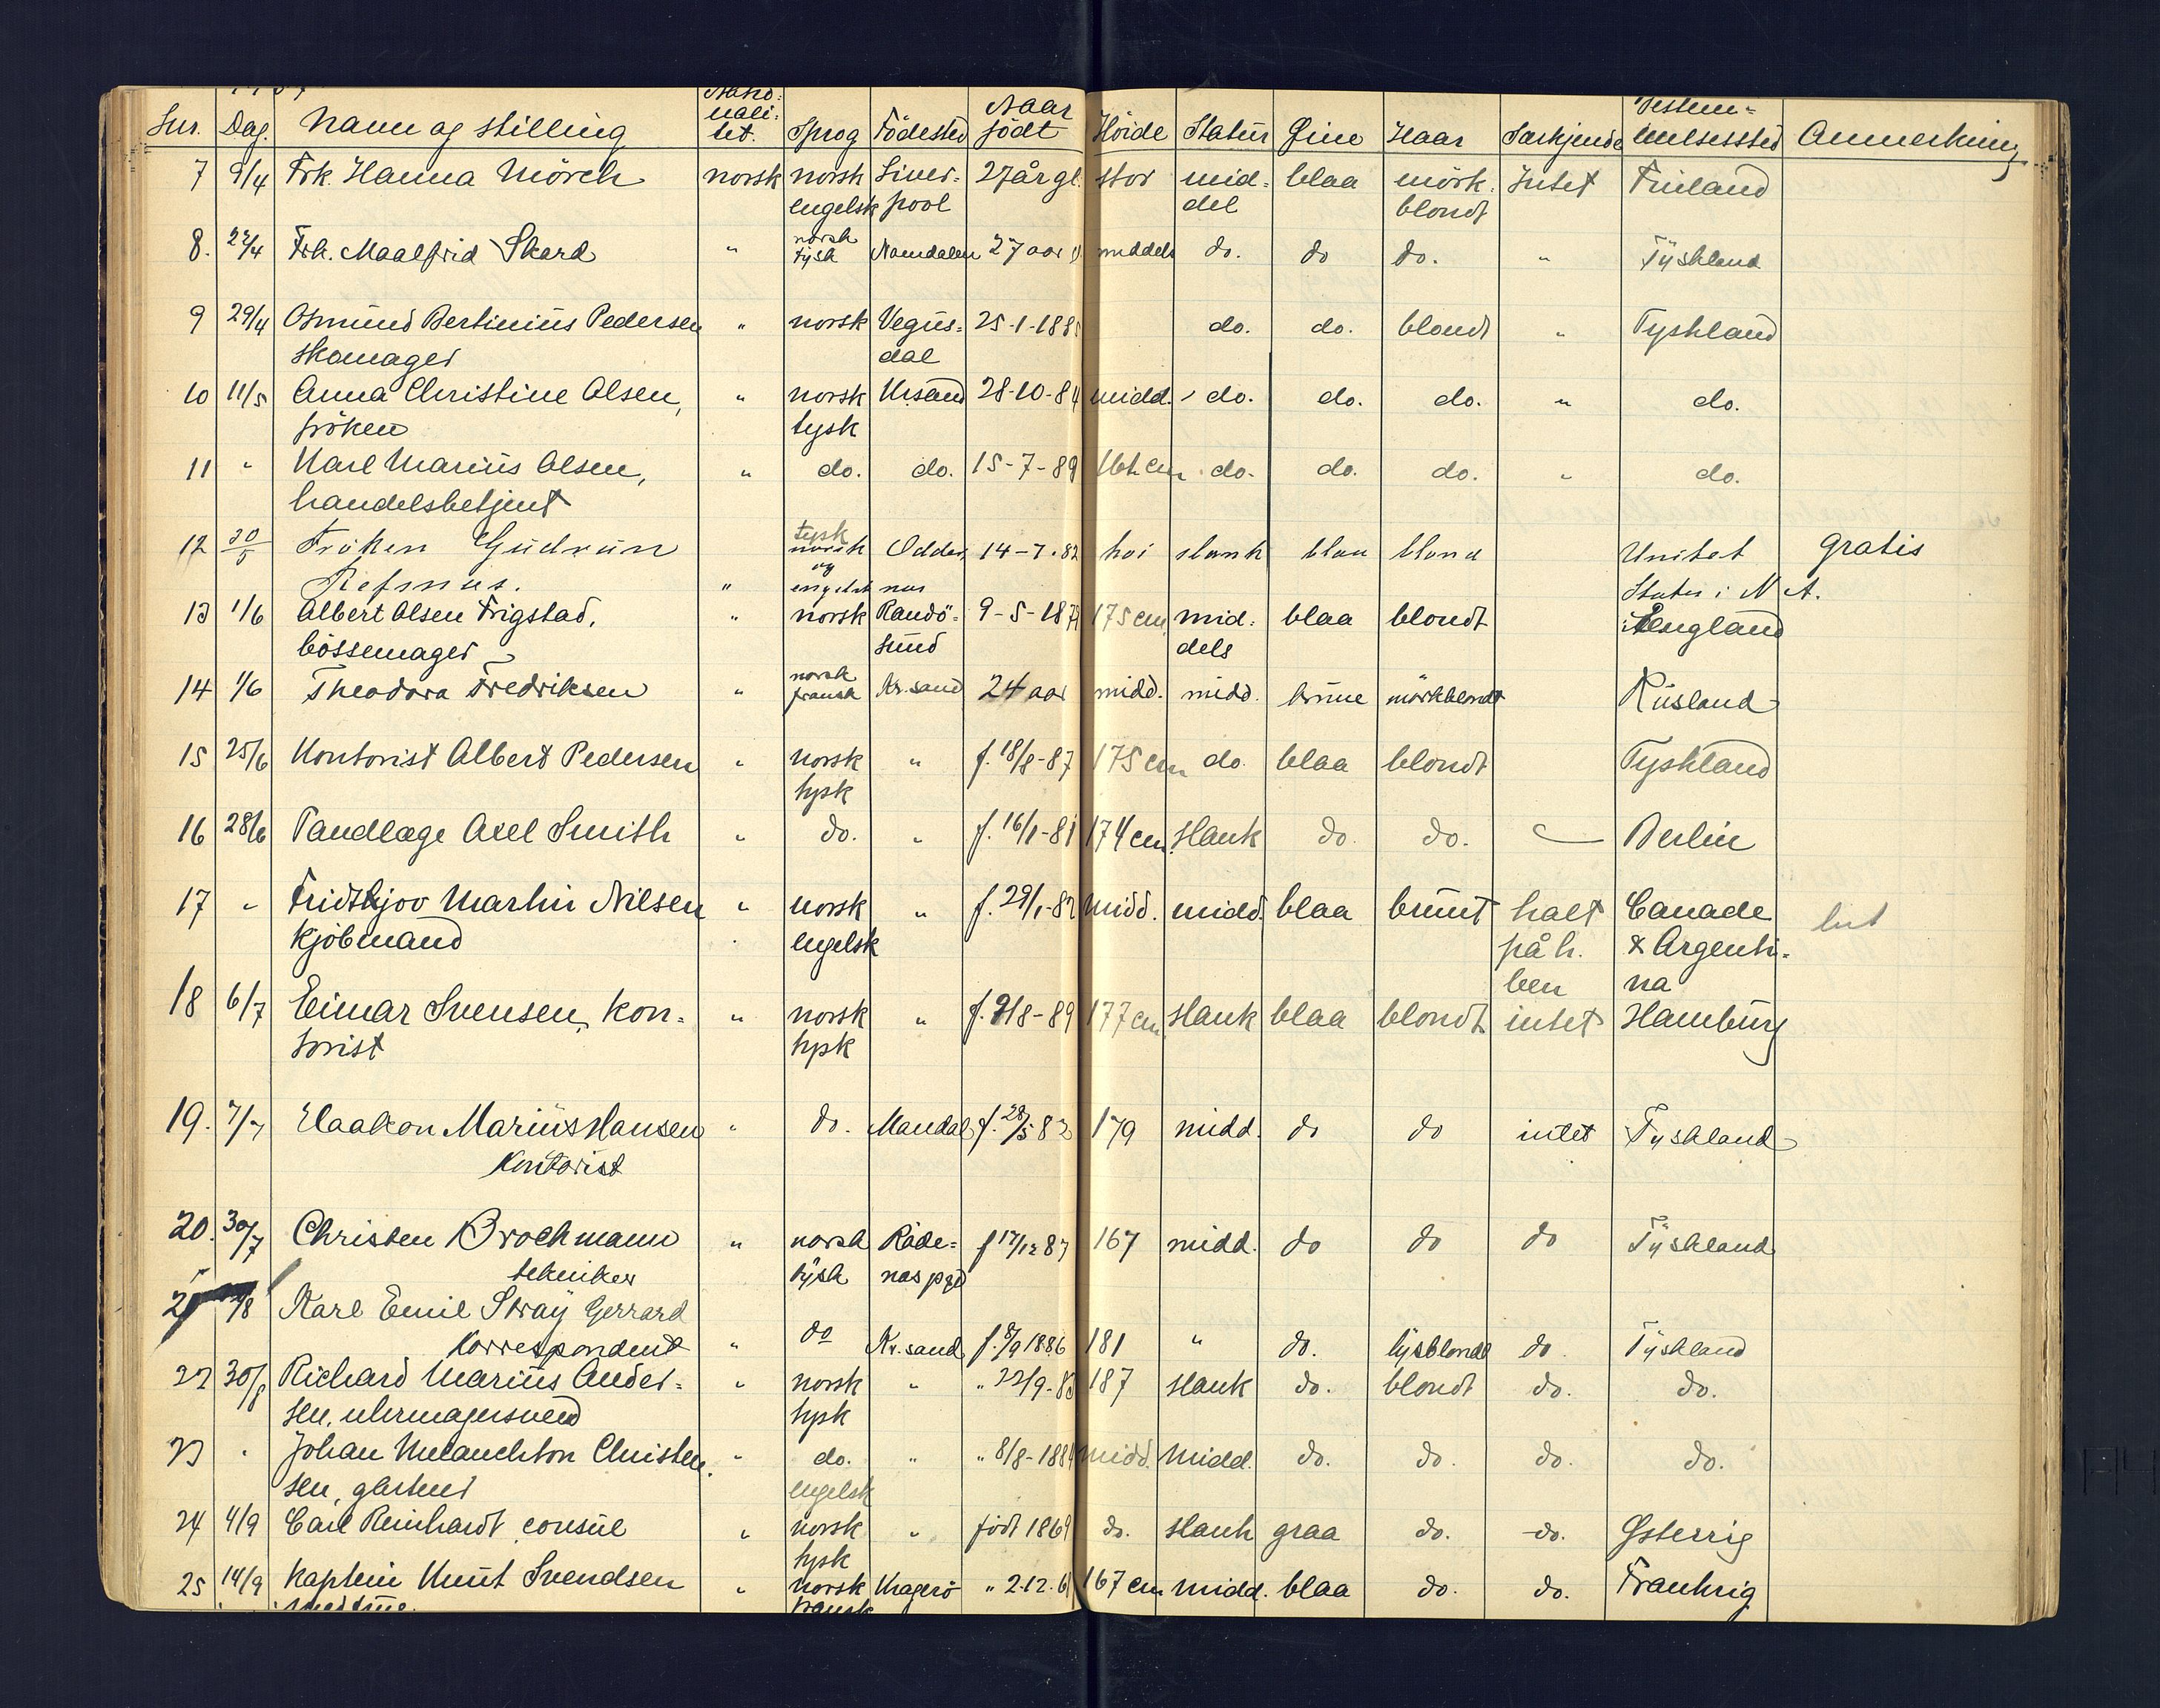 Natio=
nali=
tet.
Naar
födt
Bestem=
melsessted
Lnr. Dag. Navn og stilling Sprog Födested Höide Statur Øine Haar Særkjende Anmerkning
7 9/4 Frk. Hanna Mörch norsk norsk Liver= 27 år gl. stor mid= blaa mörk= Intet Finland
engelsk pool del blondt
8. 22/4 Frk. Maalfrid Skard " norsk Namdalen 27 aar middels do. do do. " Tÿskland
tysk
9 29/4 Osmund Bertinius Pedersen " norsk Vegus= 25-1-1885 do. do. blondt " Tyskland
skomager dal
10 11/5 Anna Christine Olsen, " norsk Krsand 28-10-84 midd. do. do. do. " do.
fröken tysk
11 " Karl Marius Olsen, " do. do. 15-7-89 cm do. do. do. " do.
handelsbetjent
12 30/5 Fröken Gudrun tysk norsk Odder 14-7-82 hoi slank blaa blond Unitet gratis
Refsnes. " og engelsk nes Stater i N A.
13 1/6 Albert Olsen Frigstad, " norsk Randö= 9-5-187 175 cm mid= blaa blondt England
bössemager sund dels
14 1/6 Theodora Fredriksen " norsk fransk Kr.sand 24 aar midd. midd. brune mörkblondt Rusland
15 25/6 Kontorist Albert Pedersen " norsk " f. 18/8-87 175 cm do. blaa blondt Tyskland
tysk
16 28/6 Tandlæge Axel Smith " do. " f. 16/1-81 174 cm slank do do. — Berlin
17 " Fridthjov Martin Nilsen " norsk " f. 29/1-82 midd. midd. blaa brunt halt Canade
kjöbmand engelsk på h. & Argenti-
ben na
18 6/7 Einar Svensen, kon= " norsk " f. 9/8-89 177 cm slank blaa blondt intet Hamburg
torist tysk
19. 7/7 Haakon Marius Hansen " do. Mandal f. 28/5 82 179 midd. do do intet Tyskland
Kontorist
20. 30/7 Christen Brochmann " norsk Röde= f 17/12 87 167 midd. do do do Tÿskland
tekniker tysk næs pgd
21 /8 Karl Emil Stray Gerrard
Korrespondent " do Kr.sand f. 8/9 1886 181 " do. lysblondt do Tÿskland
22 30/8 Richard Marius Ander= " norsk " " 22/9-8 187 slank do. blondt do. do.
sen, uhrmagersvend tysk
23 " Johan Melanchton Christen " do. " " 8/8-1884 midd. midd. do. do. do. do.
sen, gartner engelsk
24 4/9 Carl Reinhardt, consul " norsk " födt 1869 do. slank graa do. do. Østerrig
tysk
25 14/9 Kaptein Knut Svendsen " norsk Kragerö " 2.12.6 167 cm midd. blaa do. do. Frankrig
fransk